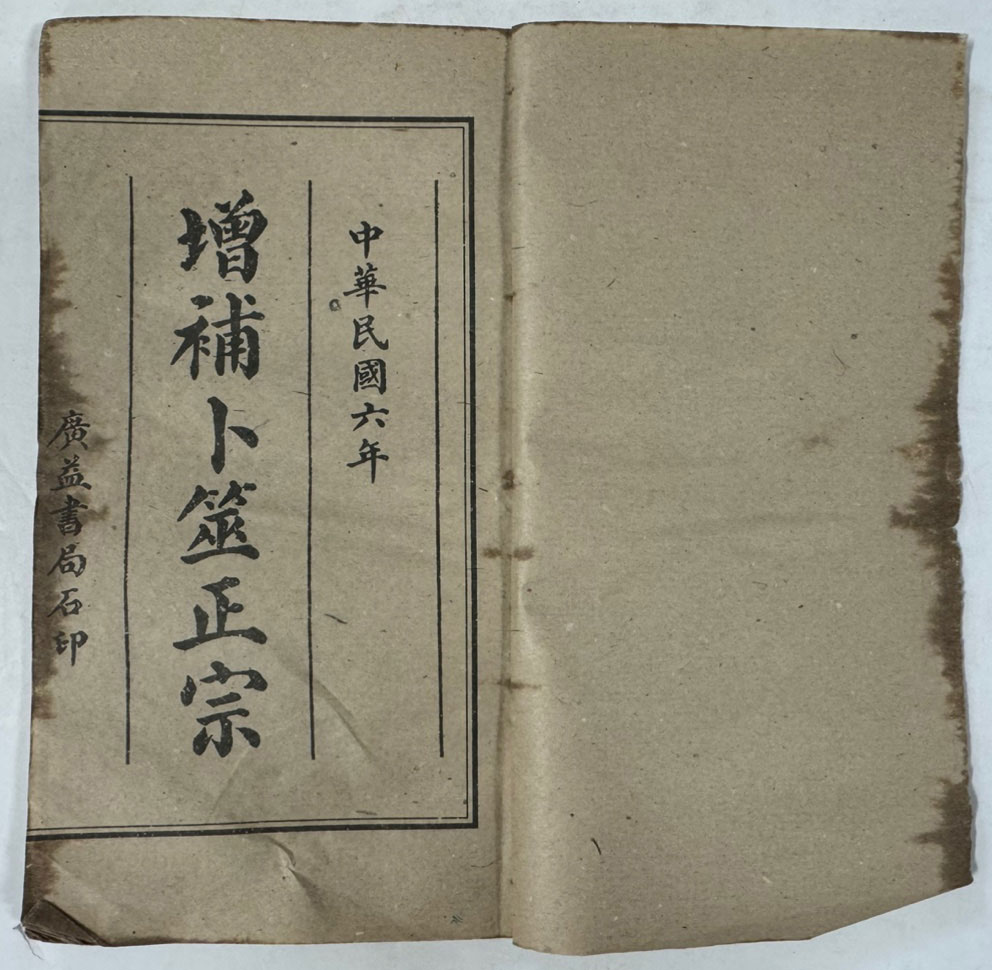 中華民國六年
增補卜筮正宗
廣益書局石印